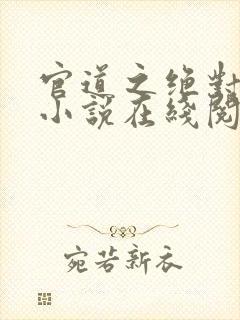 官道之绝对
小説在綫閱
宛若新衣